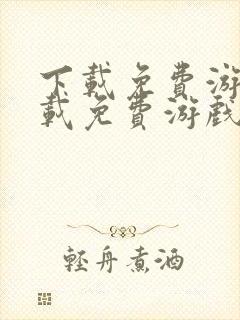 下载免费游
载免费游戏
轻舟煮酒